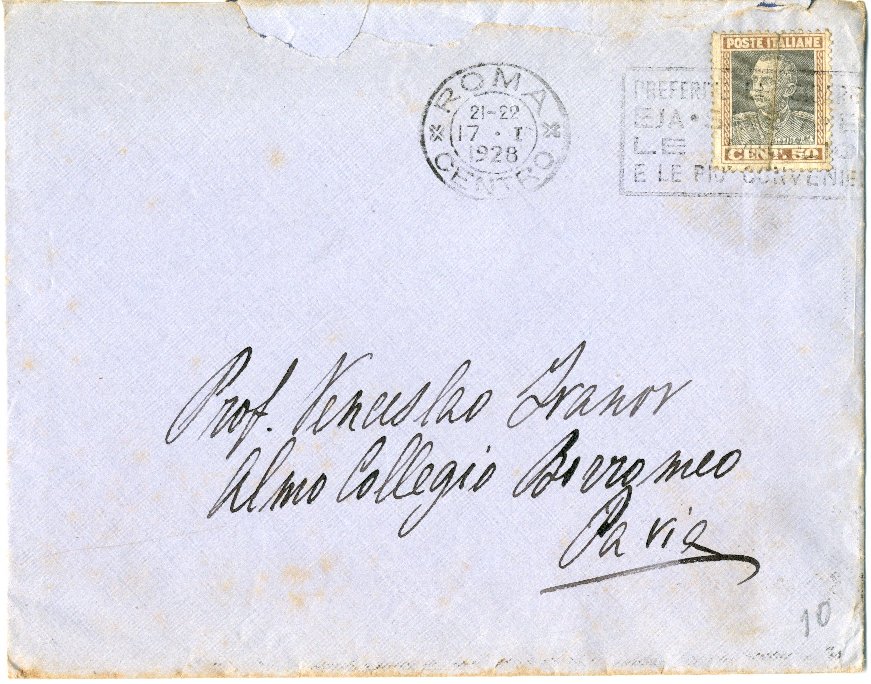 ROMA
21-22
17 · I
1928
CENTRO
POSTE ITALIANE
CENT. 50
PREFERIT
EJA
LE
E LE PIÙ CONVENIE
Prof. Venceslao Ivanov
Almo Collegio Borromeo
Pavia
10